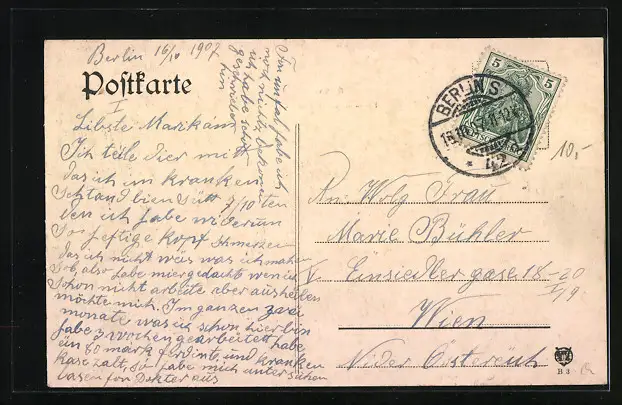 Berlin 16/10 1907
Postkarte
I
Libste Marikam
Ich teile Dier mitt
das ich im kranken
Schtand bien seit 7/10
den ich habe widerum
so heftige kopf schmerzen
das ich nicht wäs was ich machen
sol, also habe mier gedacht wen ich
schon nicht arbeite aber ausheilen
möchte mich. Im ganzen zwei
monate was ich schon hier bin
habe 3 wochen gearbeitet habe
ein 80 mark ferdint, und kranken
kase zalt, so habe mich unter suchen
lasen fon Dokter aus
Im unfal habe ich
noch nichts bekomen
ich habe schon
geschrieben
hin
BERLIN S
42
5 5
10,-
An Wolg Frau
Marie Bühler
V Einsiedler gase 18-20
Wien
Nider Östereich
B 3